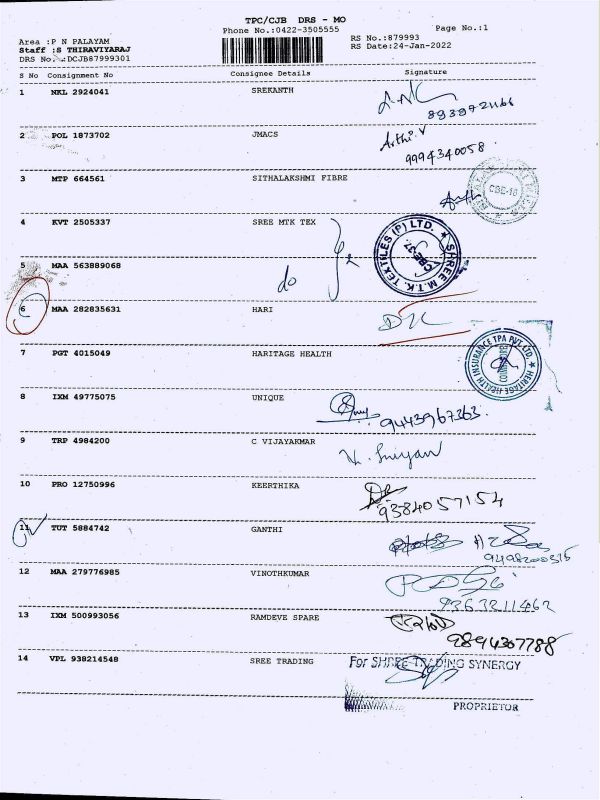 TPC/CJB DRS - MO
Phone No.:0422-3505555
Page No.:1
Area :P N PALAYAM
RS No.:879993
Staff :S THIRAVIYARAJ
RS Date:24-Jan-2022
DRS No.:DCJB87999301
S No Consignment No Consignee Details Signature
1 NKL 2924041 SREKANTH
2 POL 1873702 JMACS Arthi.V
9994340058
3 MTP 664561 SITHALAKSHMI FIBRE
CBE-18
4 KVT 2505337 SREE MTK TEX
SHREE M.T.K. TEXTILES (P) LTD.
CBE-37
5 MAA 563889068 do
6 MAA 282835631 HARI
7 PGT 4015049 HARITAGE HEALTH
HERITAGE HEALTH INSURANCE TPA PVT. LTD.
8 IXM 49775075 UNIQUE
9443967363
9 TRP 4984200 C VIJAYAKMAR
10 PRO 12750996 KEERTHIKA
9384057154
11 TUT 5884742 GANTHI
9498200515
12 MAA 279776985 VINOTHKUMAR
9363211462
13 IXM 500993056 RAMDEVE SPARE
9894307788
14 VPL 938214548 SREE TRADING For SHREE TRADING SYNERGY
PROPRIETOR